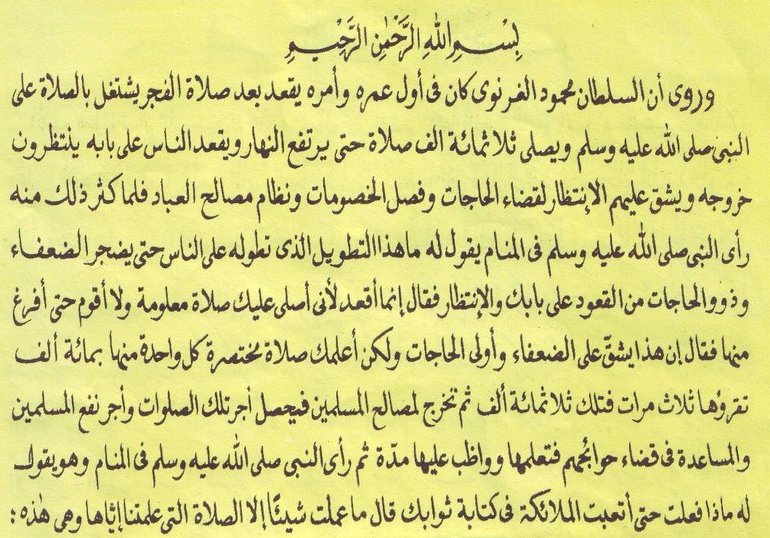 بِسْمِ اللهِ الرَّحْمٰنِ الرَّحِيمِ
وروى أن السلطان محمود الغزنوى كان فى أول عمره وأمره يقعد بعد صلاة الفجر يشتغل بالصلاة على
النبى صلى الله عليه وسلم ويصلى ثلاثمائة الف صلاة حتى يرتفع النهار ويقعد الناس على بابه ينتظرون
خروجه ويشق عليهم الإنتظار لقضاء الحاجات وفصل الخصومات ونظام مصالح العباد فلما كثر ذلك منه
رأى النبى صلى الله عليه وسلم فى المنام يقول له ما هذا التطويل الذى تطوله على الناس حتى يضجر الضعفاء
وذوو الحاجات من القعود على بابك والإنتظار فقال إنما أقعد لأنى أصلى عليك صلاة معلومة ولا أقوم حتى أفرغ
منها فقال إن هذا يشقّ على الضعفاء وأولى الحاجات ولكن أعلمك صلاة مختصرة كل واحدة منها بمائة ألف
تقرؤها ثلاث مرات فتلك ثلاثمائة ألف ثم تخرج لمصالح المسلمين فيحصل أجر تلك الصلوات وأجر نفع المسلمين
والمساعدة فى قضاء حوائجهم فتعلمها وواظب عليها مدّة ثم رأى النبى صلى الله عليه وسلم فى المنام وهو يقول
له ماذا فعلت حتى أتعبت الملائكة فى كتابة ثوابك قال ما عملت شيئًا إلا الصلاة التى علمتنا إيّاها وهى هٰذه :